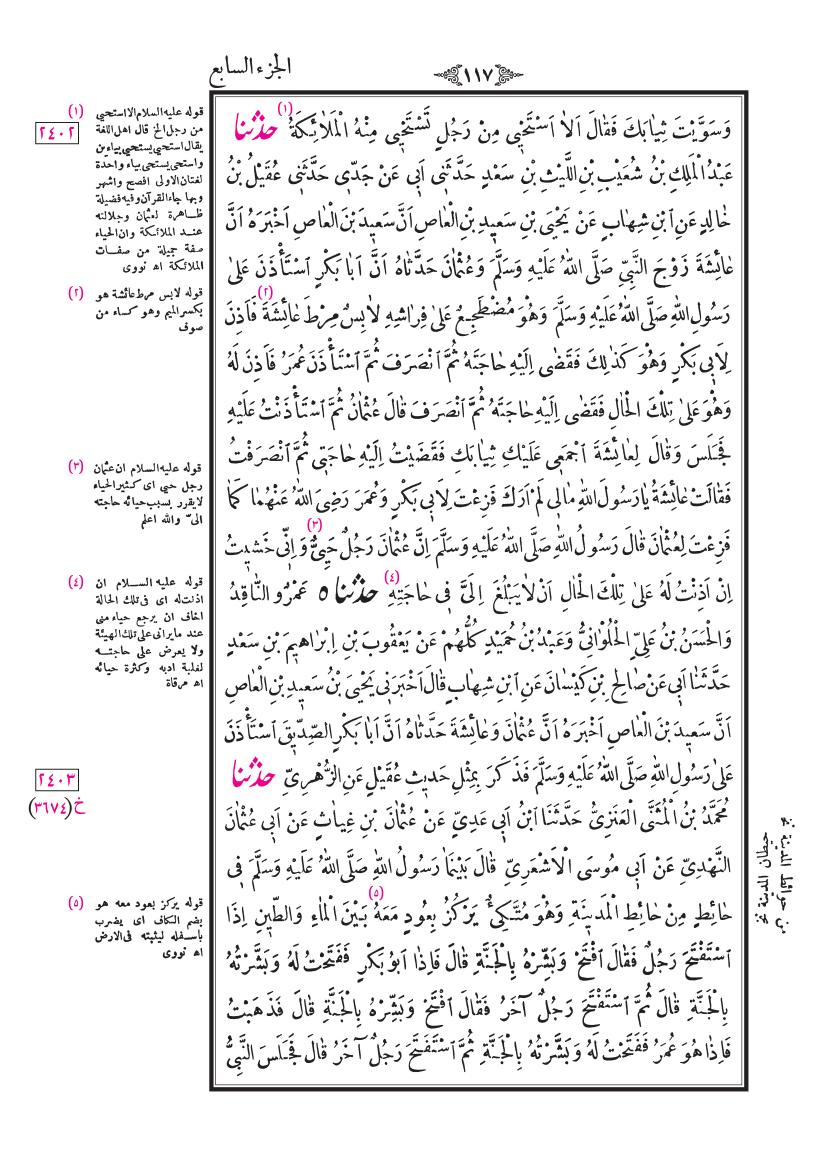 الجزء السابع
١١٧
وَسَوَّيْتَ ثِيَابَكَ فَقَالَ اَلاَ اَسْتَحْيِي مِنْ رَجُلٍ تَسْتَحْيِي مِنْهُ الْمَلاَئِكَةُ (١) حدثنا
عَبْدُ الْمَلِكِ بْنُ شُعَيْبِ بْنِ اللَّيْثِ بْنِ سَعْدٍ حَدَّثَنِى اَبِى عَنْ جَدِّى حَدَّثَنِى عُقَيْلُ بْنُ
خَالِدٍ عَنِ ابْنِ شِهَابٍ عَنْ يَحْيَى بْنِ سَعِيدِ بْنِ الْعَاصِ اَنَّ سَعِيدَ بْنَ الْعَاصِ اَخْبَرَهُ اَنَّ
عَائِشَةَ زَوْجَ النَّبِيِّ صَلَّى اللهُ عَلَيْهِ وَسَلَّمَ وَعُثْمَانَ حَدَّثَاهُ اَنَّ اَبَا بَكْرٍ اسْتَأْذَنَ عَلَى
رَسُولِ اللهِ صَلَّى اللهُ عَلَيْهِ وَسَلَّمَ وَهُوَ مُضْطَجِعٌ عَلَى فِرَاشِهِ لاَبِسٌ مِرْطَ عَائِشَةَ (٢) فَاَذِنَ
لِاَبِى بَكْرٍ وَهُوَ كَذٰلِكَ فَقَضَى اِلَيْهِ حَاجَتَهُ ثُمَّ انْصَرَفَ ثُمَّ اسْتَأْذَنَ عُمَرُ فَاَذِنَ لَهُ
وَهُوَ عَلَى تِلْكَ الْحَالِ فَقَضَى اِلَيْهِ حَاجَتَهُ ثُمَّ انْصَرَفَ قَالَ عُثْمَانُ ثُمَّ اسْتَأْذَنْتُ عَلَيْهِ
فَجَلَسَ وَقَالَ لِعَائِشَةَ اجْمَعِى عَلَيْكِ ثِيَابَكِ فَقَضَيْتُ اِلَيْهِ حَاجَتِى ثُمَّ انْصَرَفْتُ
فَقَالَتْ عَائِشَةُ يَا رَسُولَ اللهِ مَالِى لَمْ اَرَكَ فَزِعْتَ لِاَبِى بَكْرٍ وَعُمَرَ رَضِىَ اللهُ عَنْهُمَا كَمَا
فَزِعْتَ لِعُثْمَانَ قَالَ رَسُولُ اللهِ صَلَّى اللهُ عَلَيْهِ وَسَلَّمَ اِنَّ عُثْمَانَ رَجُلٌ حَيِىٌّ (٣) وَاِنِّى خَشِيتُ
اِنْ اَذِنْتُ لَهُ عَلَى تِلْكَ الْحَالِ اَنْ لاَ يَبْلُغَ اِلَىَّ فِى حَاجَتِهِ (٤) حدثنا ٥ عَمْرٌو النَّاقِدُ
وَالْحَسَنُ بْنُ عَلِيٍّ الْحُلْوَانِيُّ وَعَبْدُ بْنُ حُمَيْدٍ كُلُّهُمْ عَنْ يَعْقُوبَ بْنِ اِبْرَاهِيمَ بْنِ سَعْدٍ
حَدَّثَنَا اَبِى عَنْ صَالِحِ بْنِ كَيْسَانَ عَنِ ابْنِ شِهَابٍ قَالَ اَخْبَرَنِى يَحْيَى بْنُ سَعِيدِ بْنِ الْعَاصِ
اَنَّ سَعِيدَ بْنَ الْعَاصِ اَخْبَرَهُ اَنَّ عُثْمَانَ وَعَائِشَةَ حَدَّثَاهُ اَنَّ اَبَا بَكْرٍ الصِّدِّيقَ اسْتَأْذَنَ
عَلَى رَسُولِ اللهِ صَلَّى اللهُ عَلَيْهِ وَسَلَّمَ فَذَكَرَ بِمِثْلِ حَدِيثِ عُقَيْلٍ عَنِ الزُّهْرِيِّ حدثنا
مُحَمَّدُ بْنُ الْمُثَنَّى الْعَنَزِيُّ حَدَّثَنَا ابْنُ اَبِى عَدِيٍّ عَنْ عُثْمَانَ بْنِ غِيَاثٍ عَنْ اَبِى عُثْمَانَ
النَّهْدِيِّ عَنْ اَبِى مُوسَى الْاَشْعَرِيِّ قَالَ بَيْنَمَا رَسُولُ اللهِ صَلَّى اللهُ عَلَيْهِ وَسَلَّمَ فِى
حَائِطٍ مِنْ حَائِطِ الْمَدِينَةِ وَهُوَ مُتَّكِئٌ يَرْكُزُ بِعُودٍ مَعَهُ (٥) بَيْنَ الْمَاءِ وَالطِّينِ اِذَا
اسْتَفْتَحَ رَجُلٌ فَقَالَ افْتَحْ وَبَشِّرْهُ بِالْجَنَّةِ قَالَ فَاِذَا اَبُو بَكْرٍ فَفَتَحْتُ لَهُ وَبَشَّرْتُهُ
بِالْجَنَّةِ قَالَ ثُمَّ اسْتَفْتَحَ رَجُلٌ آخَرُ فَقَالَ افْتَحْ وَبَشِّرْهُ بِالْجَنَّةِ قَالَ فَذَهَبْتُ
فَاِذَا هُوَ عُمَرُ فَفَتَحْتُ لَهُ وَبَشَّرْتُهُ بِالْجَنَّةِ ثُمَّ اسْتَفْتَحَ رَجُلٌ آخَرُ قَالَ فَجَلَسَ النَّبِيُّ
(١) قوله عليه السلام الا استحيى
٢٤٠٢
من رجل الخ قال اهل اللغة
يقال استحيى يستحيى بياءين
واستحى يستحى بياء واحدة
لغتان الاولى افصح واشهر
وبها جاء القرآن وفيه فضيلة
ظاهرة لعثمان وجلالته
عند الملائكة وان الحياء
صفة جميلة من صفات
الملائكة اه نووى
(٢) قوله لابس مرط عائشة هو
بكسر الميم وهو كساء من
صوف
(٣) قوله عليه السلام ان عثمان
رجل حيى اى كثير الحياء
لا يقرر بسبب حيائه حاجته
الىّ والله اعلم
(٤) قوله عليه السلام ان
اذنت له اى فى تلك الحالة
اخاف ان يرجع حياء منى
عند ما يرانى على تلك الهيئة
ولا يعرض على حاجته
لغلبة ادبه وكثرة حيائه
اه مرقاة
٢٤٠٣
خ (٣٦٧٤)
(٥) قوله يركز بعود معه هو
بضم الكاف اى يضرب
باسفله ليثبته فى الارض
اه نووى
من حوائط المدينة نخ
حيطان المدينة نخ